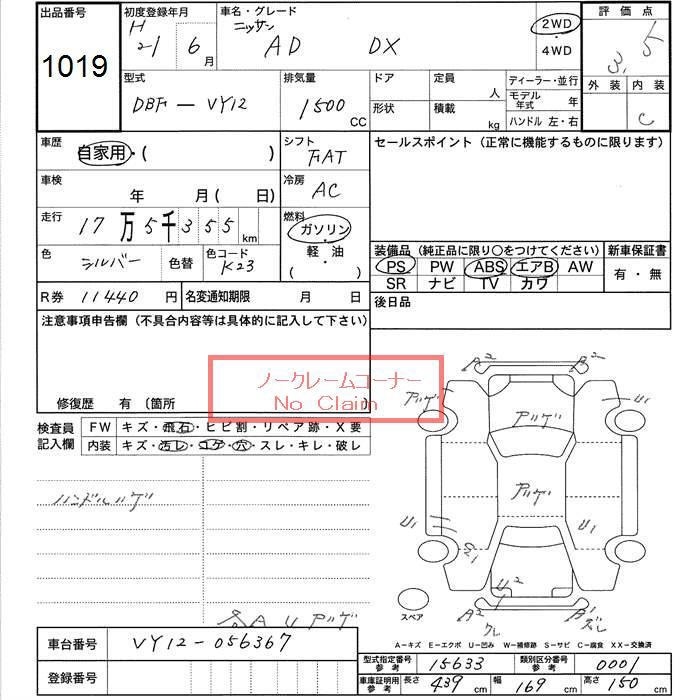 出品番号 初度登録年月 車名・グレード 評価点
1019 H 21 6 月 ニッサン AD DX 2WD 4WD 3.5
型式 排気量 ドア 定員 人 ディーラー・並行 外装 内装
DBF-VY12 1500 CC 形状 積載 kg モデル年式 年 C
ハンドル 左・右
車歴 自家用・( ) シフト FAT セールスポイント（正常に機能するものに限ります）
車検 年 月( 日) 冷房 AC
走行 17万5千355 km 燃料 ガソリン
色 シルバー 色替 色コード K23 軽・油 ( )
装備品（純正品に限り○をつけてください） 新車保証書
PS PW ABS エアB AW 有・無
SR ナビ TV カワ
R券 11440 円 名変通知期限 月 日 後日品
注意事項申告欄（不具合内容等は具体的に記入して下さい）
ノークレームコーナー
No Claim
修復歴 有 〔箇所
検査員記入欄 FW キズ・飛石・ヒビ割・リペア跡・X要
内装 キズ・汚レ・コゲ・穴・スレ・キレ・破レ
ハンドルハゲ
A2 A2
アゲ U1
アゲ
アゲ
U1 U1
U2
A2 A1
スペア
A U アゲ
A−キズ E−エクボ U−凹み W−補修跡 S−サビ C−腐食 XX−交換済
車台番号 VY12-056367
登録番号
型式指定番号 参考 15633 類別区分番号 参考 0001
車庫証明用 参考 長さ 439 cm 幅 169 cm 高さ 150 cm